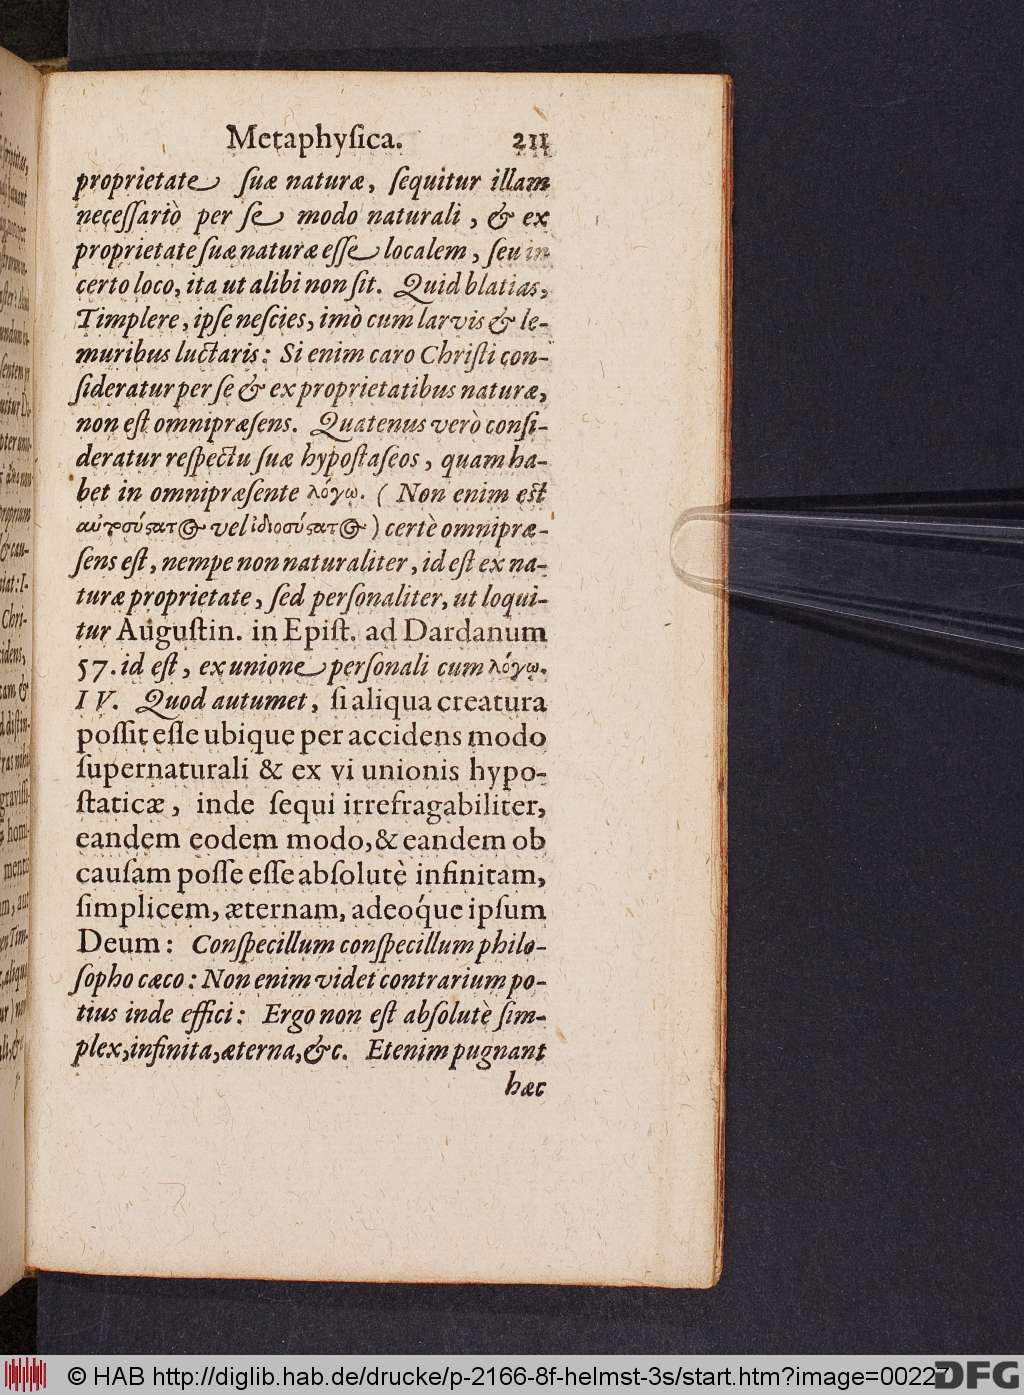 Metaphyſica. 211
proprietate ſuæ naturæ, ſequitur illam
neceſſariò per ſe modo naturali, & ex
proprietate ſuæ naturæ eſſe localem, ſeu in
certo loco, ita ut alibi non ſit. Quid blatias,
Timplere, ipſe neſcies, imò cum larvis & le-
muribus luctaris: Si enim caro Chriſti con-
ſideratur per ſe & ex proprietatibus naturæ,
non eſt omnipræſens. Quatenus verò conſi-
deratur reſpectu ſuæ hypoſtaſeos, quam ha-
bet in omnipræſente λόγῳ. (Non enim eſt
αὐτοσύςατ@ vel ἰδιοσύςατ@) certè omnipræ-
ſens eſt, nempe non naturaliter, id eſt ex na-
turæ proprietate, ſed perſonaliter, ut loqui-
tur Auguſtin. in Epiſt. ad Dardanum
57. id eſt, ex unione perſonali cum λόγῳ.
IV. Quod autumet, ſi aliqua creatura
poſſit eſſe ubique per accidens modo
ſupernaturali & ex vi unionis hypo-
ſtaticæ, inde ſequi irrefragabiliter,
eandem eodem modo, & eandem ob
cauſam poſſe eſſe abſolutè infinitam,
ſimplicem, æternam, adeoq́ue ipſum
Deum: Conſpecillum conſpecillum philo-
ſopho cæco: Non enim videt contrarium po-
tius inde effici: Ergo non eſt abſolutè ſim-
plex, infinita, æterna, &c. Etenim pugnant
hæc
© HAB http://diglib.hab.de/drucke/p-2166-8f-helmst-3s/start.htm?image=00227
DFG